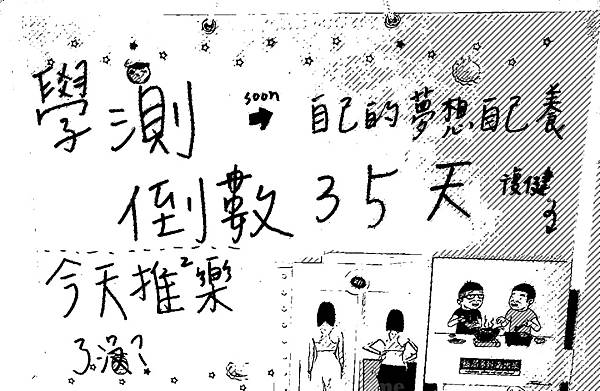 學測 soon → 自己的夢想自己養
倒數 35 天 復健
今天推²樂
了滿?
me